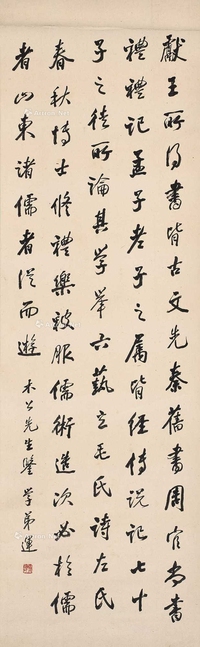 獻王所得書皆古文先秦舊書周官尚書
禮禮記孟子老子之屬皆經傳說記七十
子之徒所論其學舉六藝立毛氏詩左氏
春秋博士修禮樂被服儒術造次必於儒
者山東諸儒者從而遊
木公先生鑒 學弟運